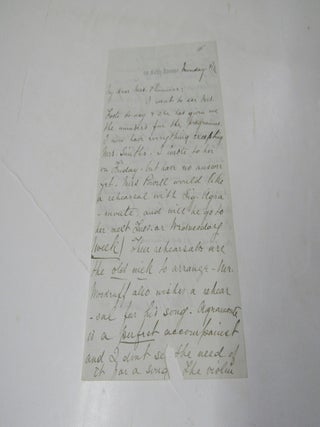 Monday
My dear Mrs.
I went to see Mrs.
to day & she has given me
the numbers for the programme.
I now have everything excepting
Mrs. I wrote to her
on Friday - but have no answer
yet. Miss Powell would like
a rehearsal with Sig. Agra
- monte, and will he go to
her next Tues. or Wednesday
(week) These rehearsals are
the old milk to arrange - Mr.
Woodruff also wishes a rehear
- sal for his song. Agramonte
is a perfect accompanist
and I don't see the need of
it for a song. The violin